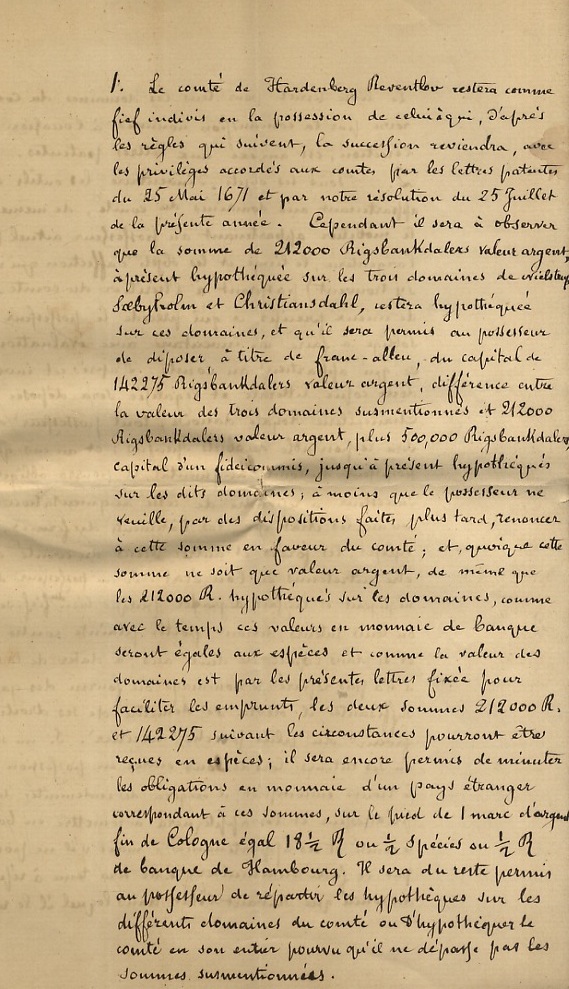 1. Le comté de Hardenberg Reventlov restera comme
fief indivis en la possession de celui à qui, d'après
les règles qui suivent, la succession reviendra, avec
les privilèges accordés aux comtes par les lettres patentes
du 25 Mai 1671 et par notre résolution du 25 Juillet
de la présente année. Cependant il sera à observer
que la somme de 212000 Rigsbankdalers valeur argent,
à présent hypothéquée sur les trois domaines de
Sæbyholm et Christiansdahl, restera hypothéquée
sur ces domaines, et qu'il sera permis au possesseur
de disposer à titre de franc-alleu, du capital de
142275 Rigsbankdalers valeur argent, différence entre
la valeur des trois domaines susmentionnés et 212000
Rigsbankdalers valeur argent, plus 500,000 Rigsbankdalers,
capital d'un fideicommis, jusqu'à présent hypothéqués
sur les dits domaines; à moins que le possesseur ne
veuille, par des dispositions faites plus tard, renoncer
à cette somme en faveur du comté; et, quoique cette
somme ne soit que valeur argent, de même que
les 212000 R. hypothéqués sur les domaines, comme
avec le temps ces valeurs en monnaie de banque
seront égales aux espèces et comme la valeur des
domaines est par les présentes lettres fixée pour
faciliter les emprunts, les deux sommes 212000 R.
et 142275 suivant les circonstances pourront être
reçues en espèces; il sera encore permis de minuter
les obligations en monnaie d'un pays étranger
correspondant à ces sommes, sur le pied de 1 marc d'argent
fin de Cologne égal 18½ R ou ½ Spécies ou ½ R
de banque de Hambourg. Il sera du reste permis
au possesseur de répartir les hypothèques sur les
différents domaines du comté ou d'hypothéquer le
comté en son entier pourvu qu'il ne dépasse pas les
sommes susmentionnées.